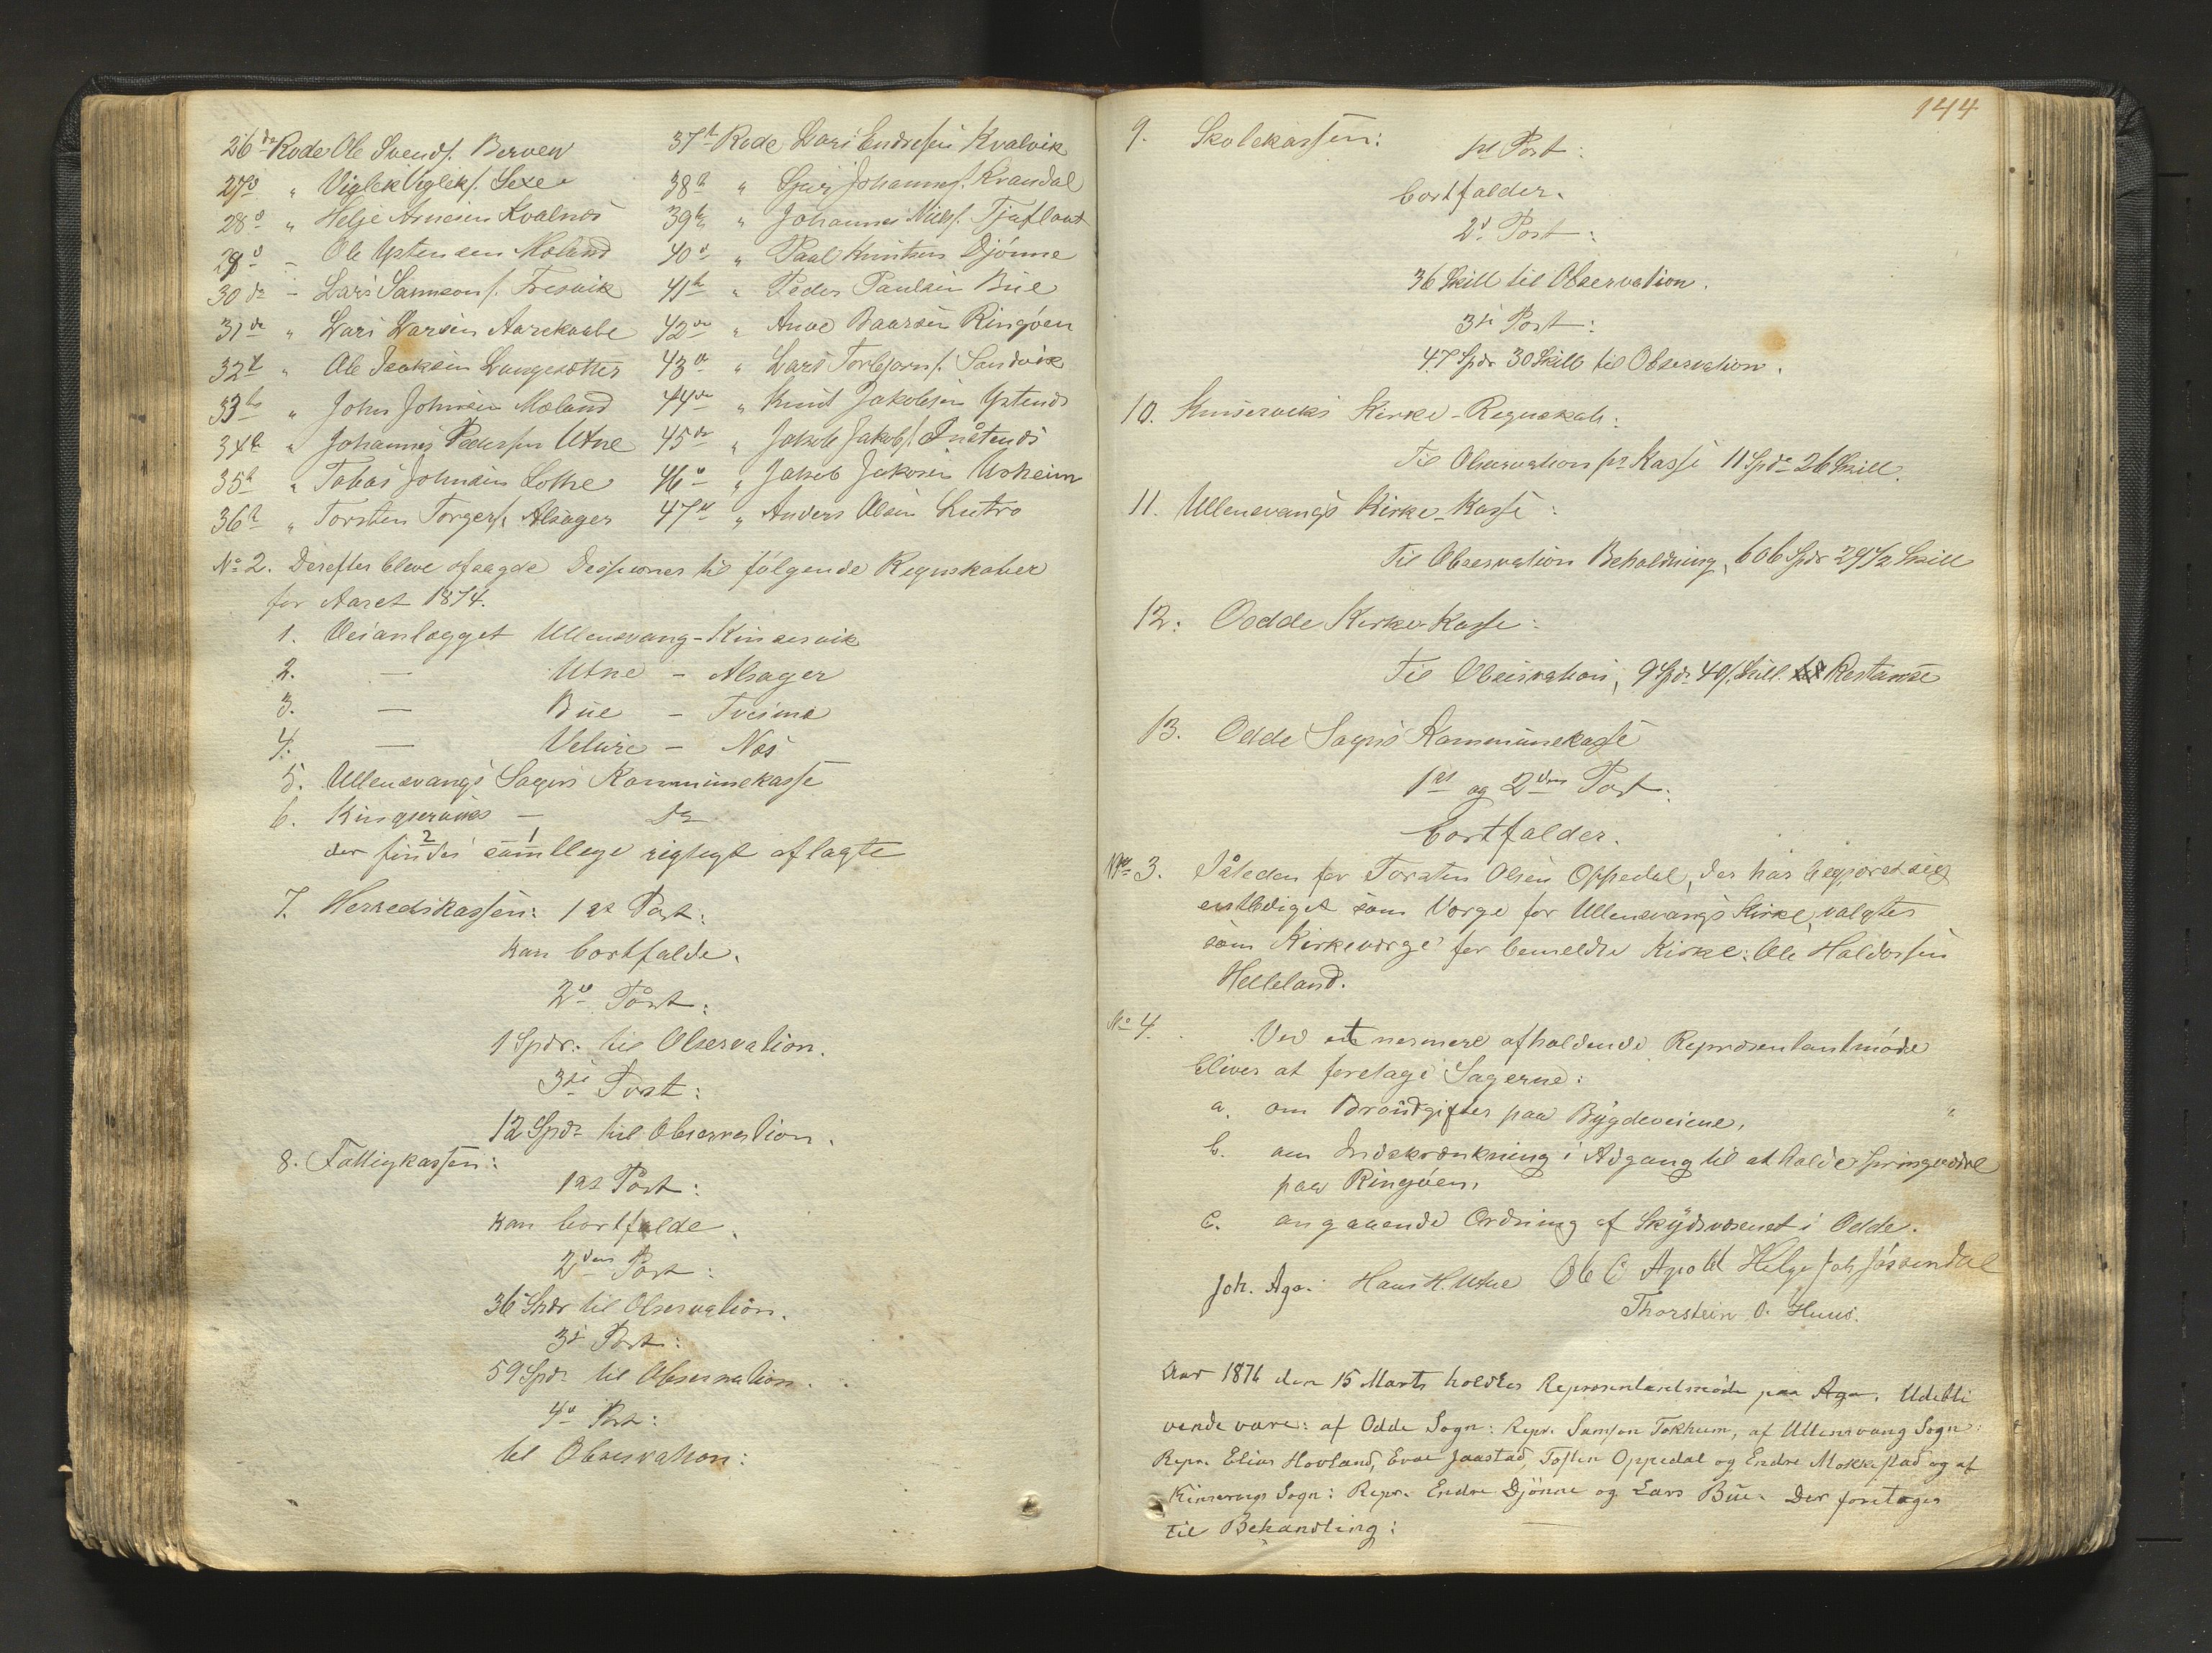 26de Rode Ole Svends. Berven
27de " Viglek Vigleks. Sexe
28de " Helje Arnesen Kvalnæs
29de - Ole Ystensen Mæland
30de - Lars Samsons. Fresvik
31de " Lars Larsen Aarekaabe
32te " Ole Isaksen Langesætter
33te " John Johnsen Mæland
34te " Johannes Pedersen Utne
35te " Tobias Johnsen Lothe
36te " Torsten Torgers. Alsager
37te Rode Lars Endresen Kvalvik
38te " Johannes. Krandal
39te " Johannes Niels. Tjoflaat
40de " Paal Knutsen Djönne
41de " Peder Paulsen Bue
42de " Baarsen Ringöen
43de " Lars Torbjørns. Sandvik
44de " Knut Jakobsen Ystenæs
45de " Jakob Jakobs.
46de " Jakob Jakosen Usheim
47de " Anders Olsen Lutro
No 2. Derefter bleve afsagde Desisioner til fölgende Regnskaber
for Aaret 1874.
1. Veianlægget Ullensvang-Kinservik
2. — Utne - Alsager
3. — Bue - Tveisme
4. — Velure - Næs
5. Ullensvangs Sogns Kommunekasse
6. Kingserviks — Do
der findes 2 samtlege 1 rigtegt aflagte
7. Herredskassen: 1ste Post:
kan bortfalde.
2de Post:
1 Spdr. til Observation.
3die Post:
12 Spdr til Observation.
8. Fattigkassen:
1ste Post:
kan bortfalde.
2den Post:
36 Spdr til Observation.
3die Post:
59 Spdr til Observation.
4de Post:
til Observation:
144
9. Skolekassen:
1st Post:
bortfalder.
2d Post:
36 Skill til Observation.
3die Post:
47 Spdr 30 Skill til Observation.
10. Kinserviks Kirke-Regnskab:
Til Observation pr Kasse 11 Spdr 26 Skill.
11. Ullensvangs Kirke-Kasse:
Til Observation Beholdning, 606 Spdr 29 1/2 Skill
12. Oodde Kirke-Kasse:
Til Observation, 9 Spdr 40 Skill. Restanse
13. Odde Sogns Kommunekasse
1ste og 2den Post:
bortfalder.
No 3. Isteden for Torsten Olsen Oppedal, der har begjæret sig
entlediget som Værge for Ullensvangs Kirke, valgtes
som Kirkeværge for bemeldte Kirke: Ole Haldorsen
Helleland.
No 4. Ved et nærmere afholdende Repræsentantmöde
bliver at foretage Sagerne:
a. om Brøidgifter paa Bygdeveiene,
b. om Indskrænkning i Adgang til at holde Springødne
paa Ringöen,
c. angaaende Ordning af Skydsvæsenet i Odde.
Joh. Aga. Hans H. Utne Ole O Apold Helge Joh Jösendal
Thorstein O. Huus.
Aar 1876 den 15 Marts holdtes Repræsentantmöde paa Aga. Udebli
vende vare: af Odde Sogn: Repr. Samson Tokheim, af Ullensvang Sogn:
Repr. Elias Hovland, Evae Jaastad, Tosten Oppedal og Endre Mokkestad og af
Kinserviks Sogn: Repr. Endre Djönne og Lars Büe. Der foretages
til Behandling: